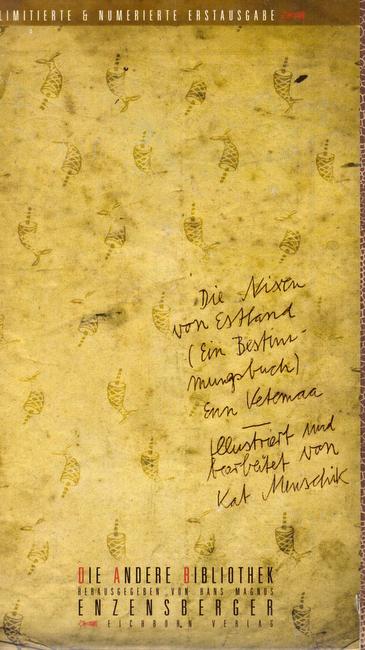 LIMITIERTE & NUMERIERTE ERSTAUSGABE
Die Nixen
von Estland
(Ein Bestim-
mungsbuch)
Enn Vetemaa
—
illustriert und
bearbeitet von
Kat Menschik
DIE ANDERE BIBLIOTHEK
HERAUSGEGEBEN VON HANS MAGNUS
ENZENSBERGER
EICHBORN VERLAG